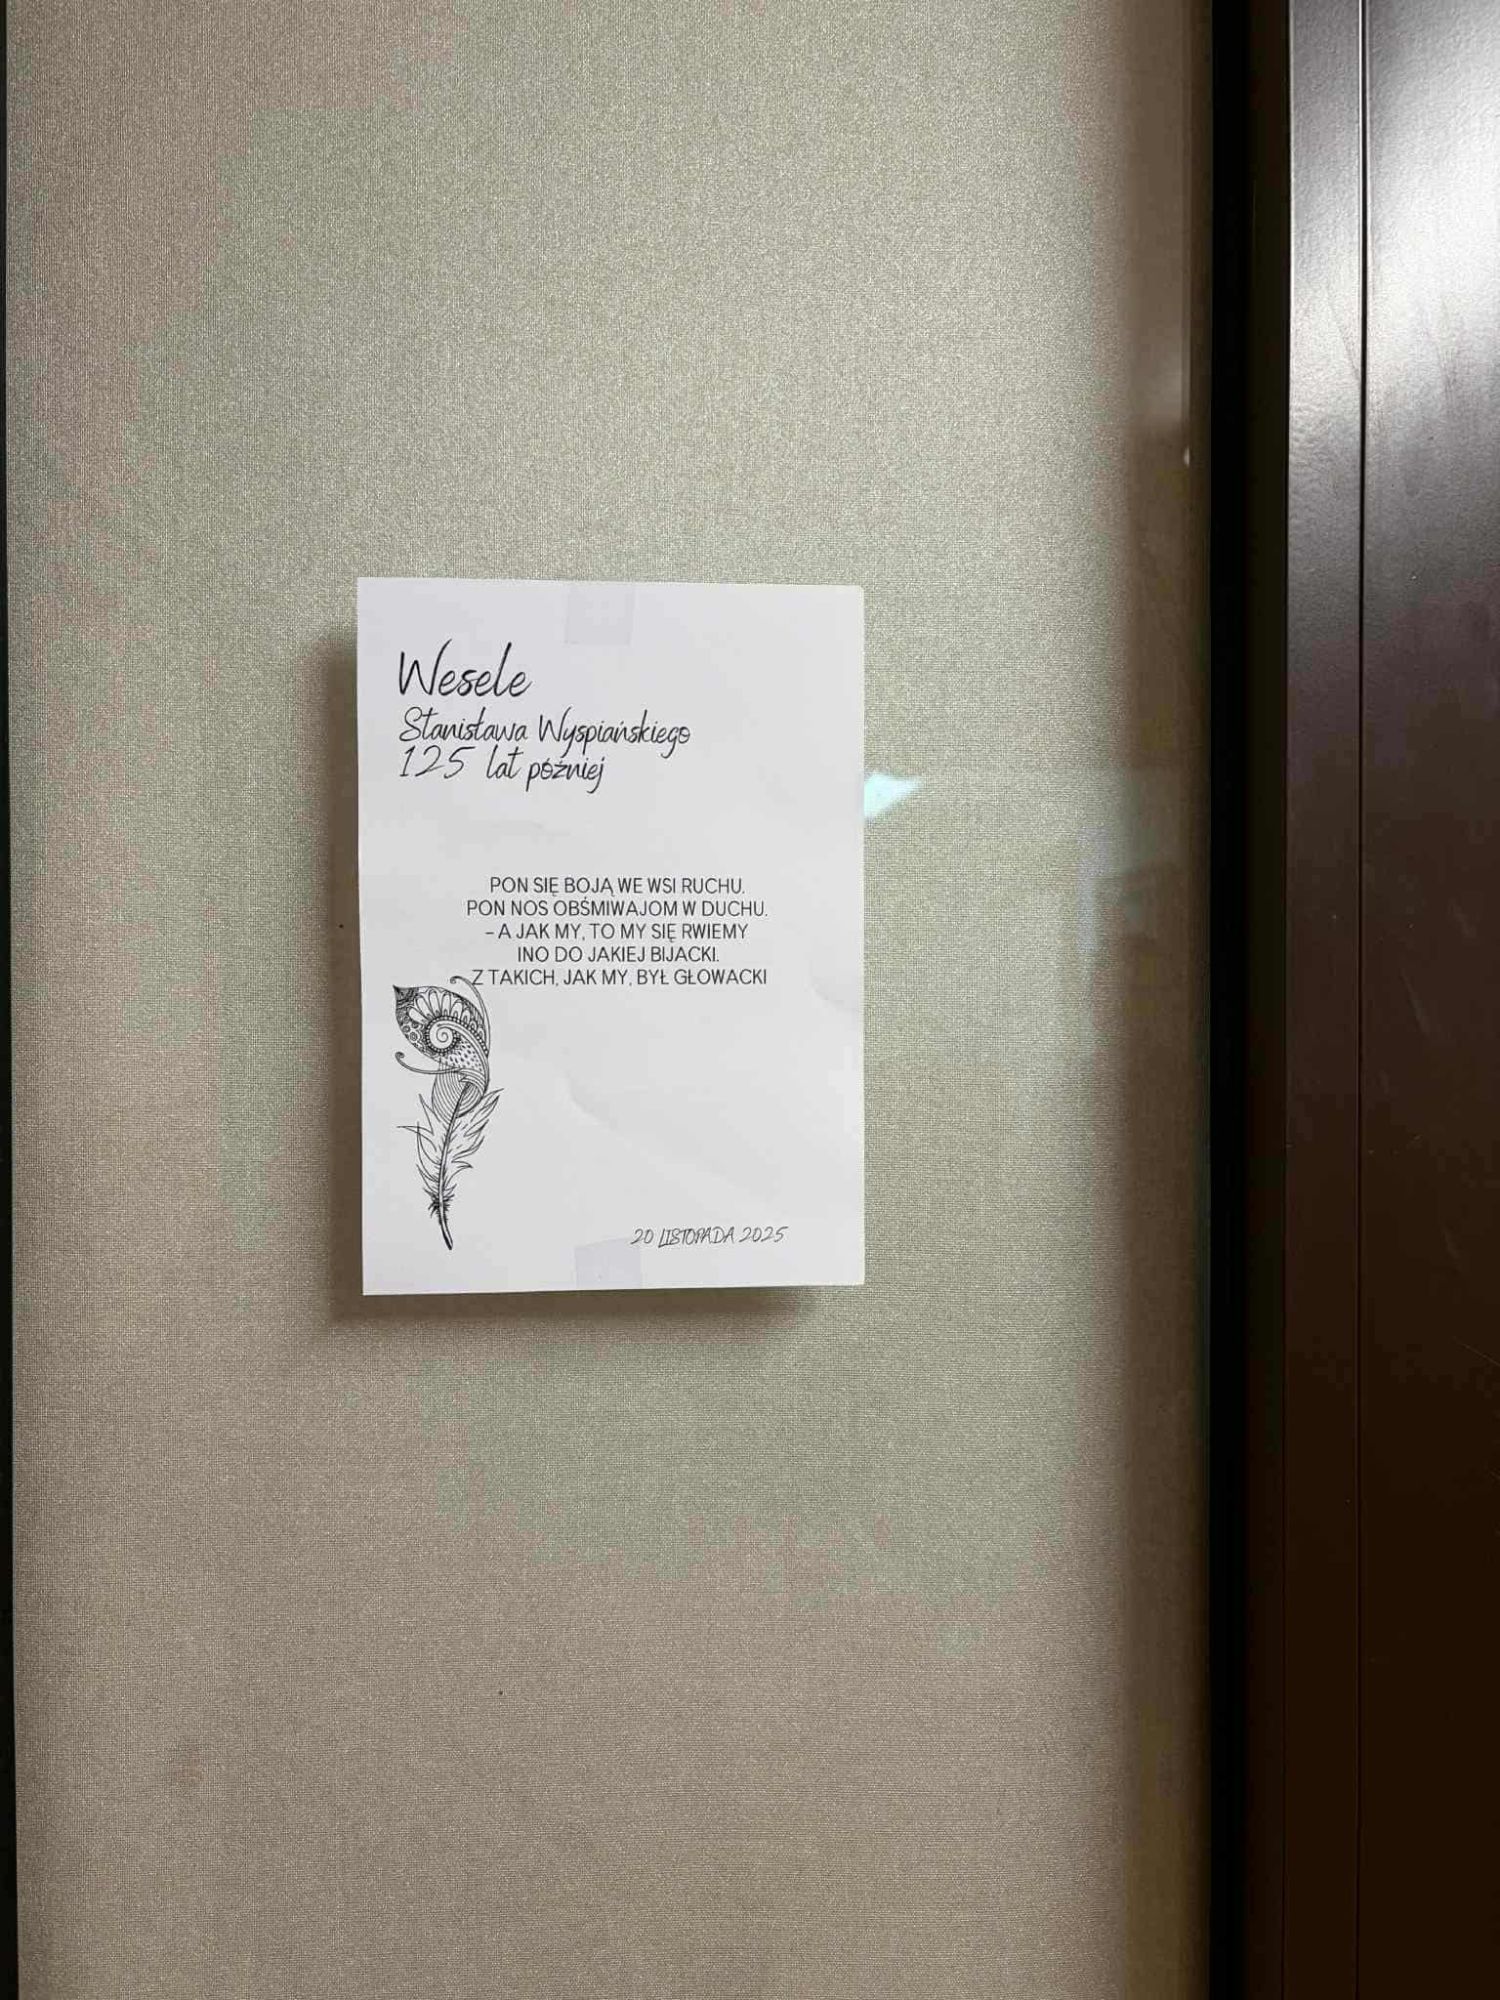 Wesele
Stanisława Wyspiańskiego
125 lat później
PON SIĘ BOJĄ WE WSI RUCHU.
PON NOS OBŚMIWAJOM W DUCHU.
– A JAK MY, TO MY SIĘ RWIEMY
INO DO JAKIEJ BIJACKI.
Z TAKICH, JAK MY, BYŁ GŁOWACKI
20 LISTOPADA 2025